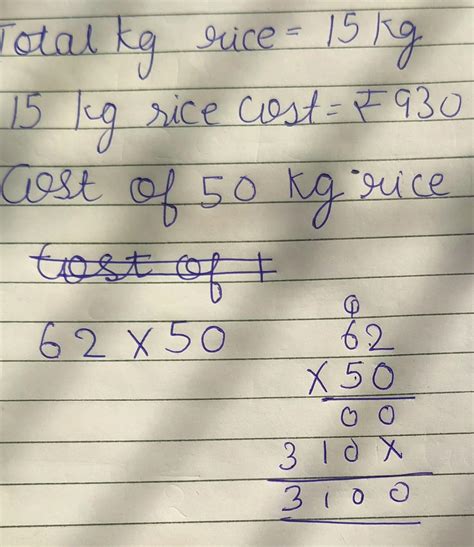 Total kg rice = 15 kg
15 kg rice cost = ₹ 930
Cost of 50 kg rice
Cost of 1
62 x 50
1
62
x 50
00
310x
3100